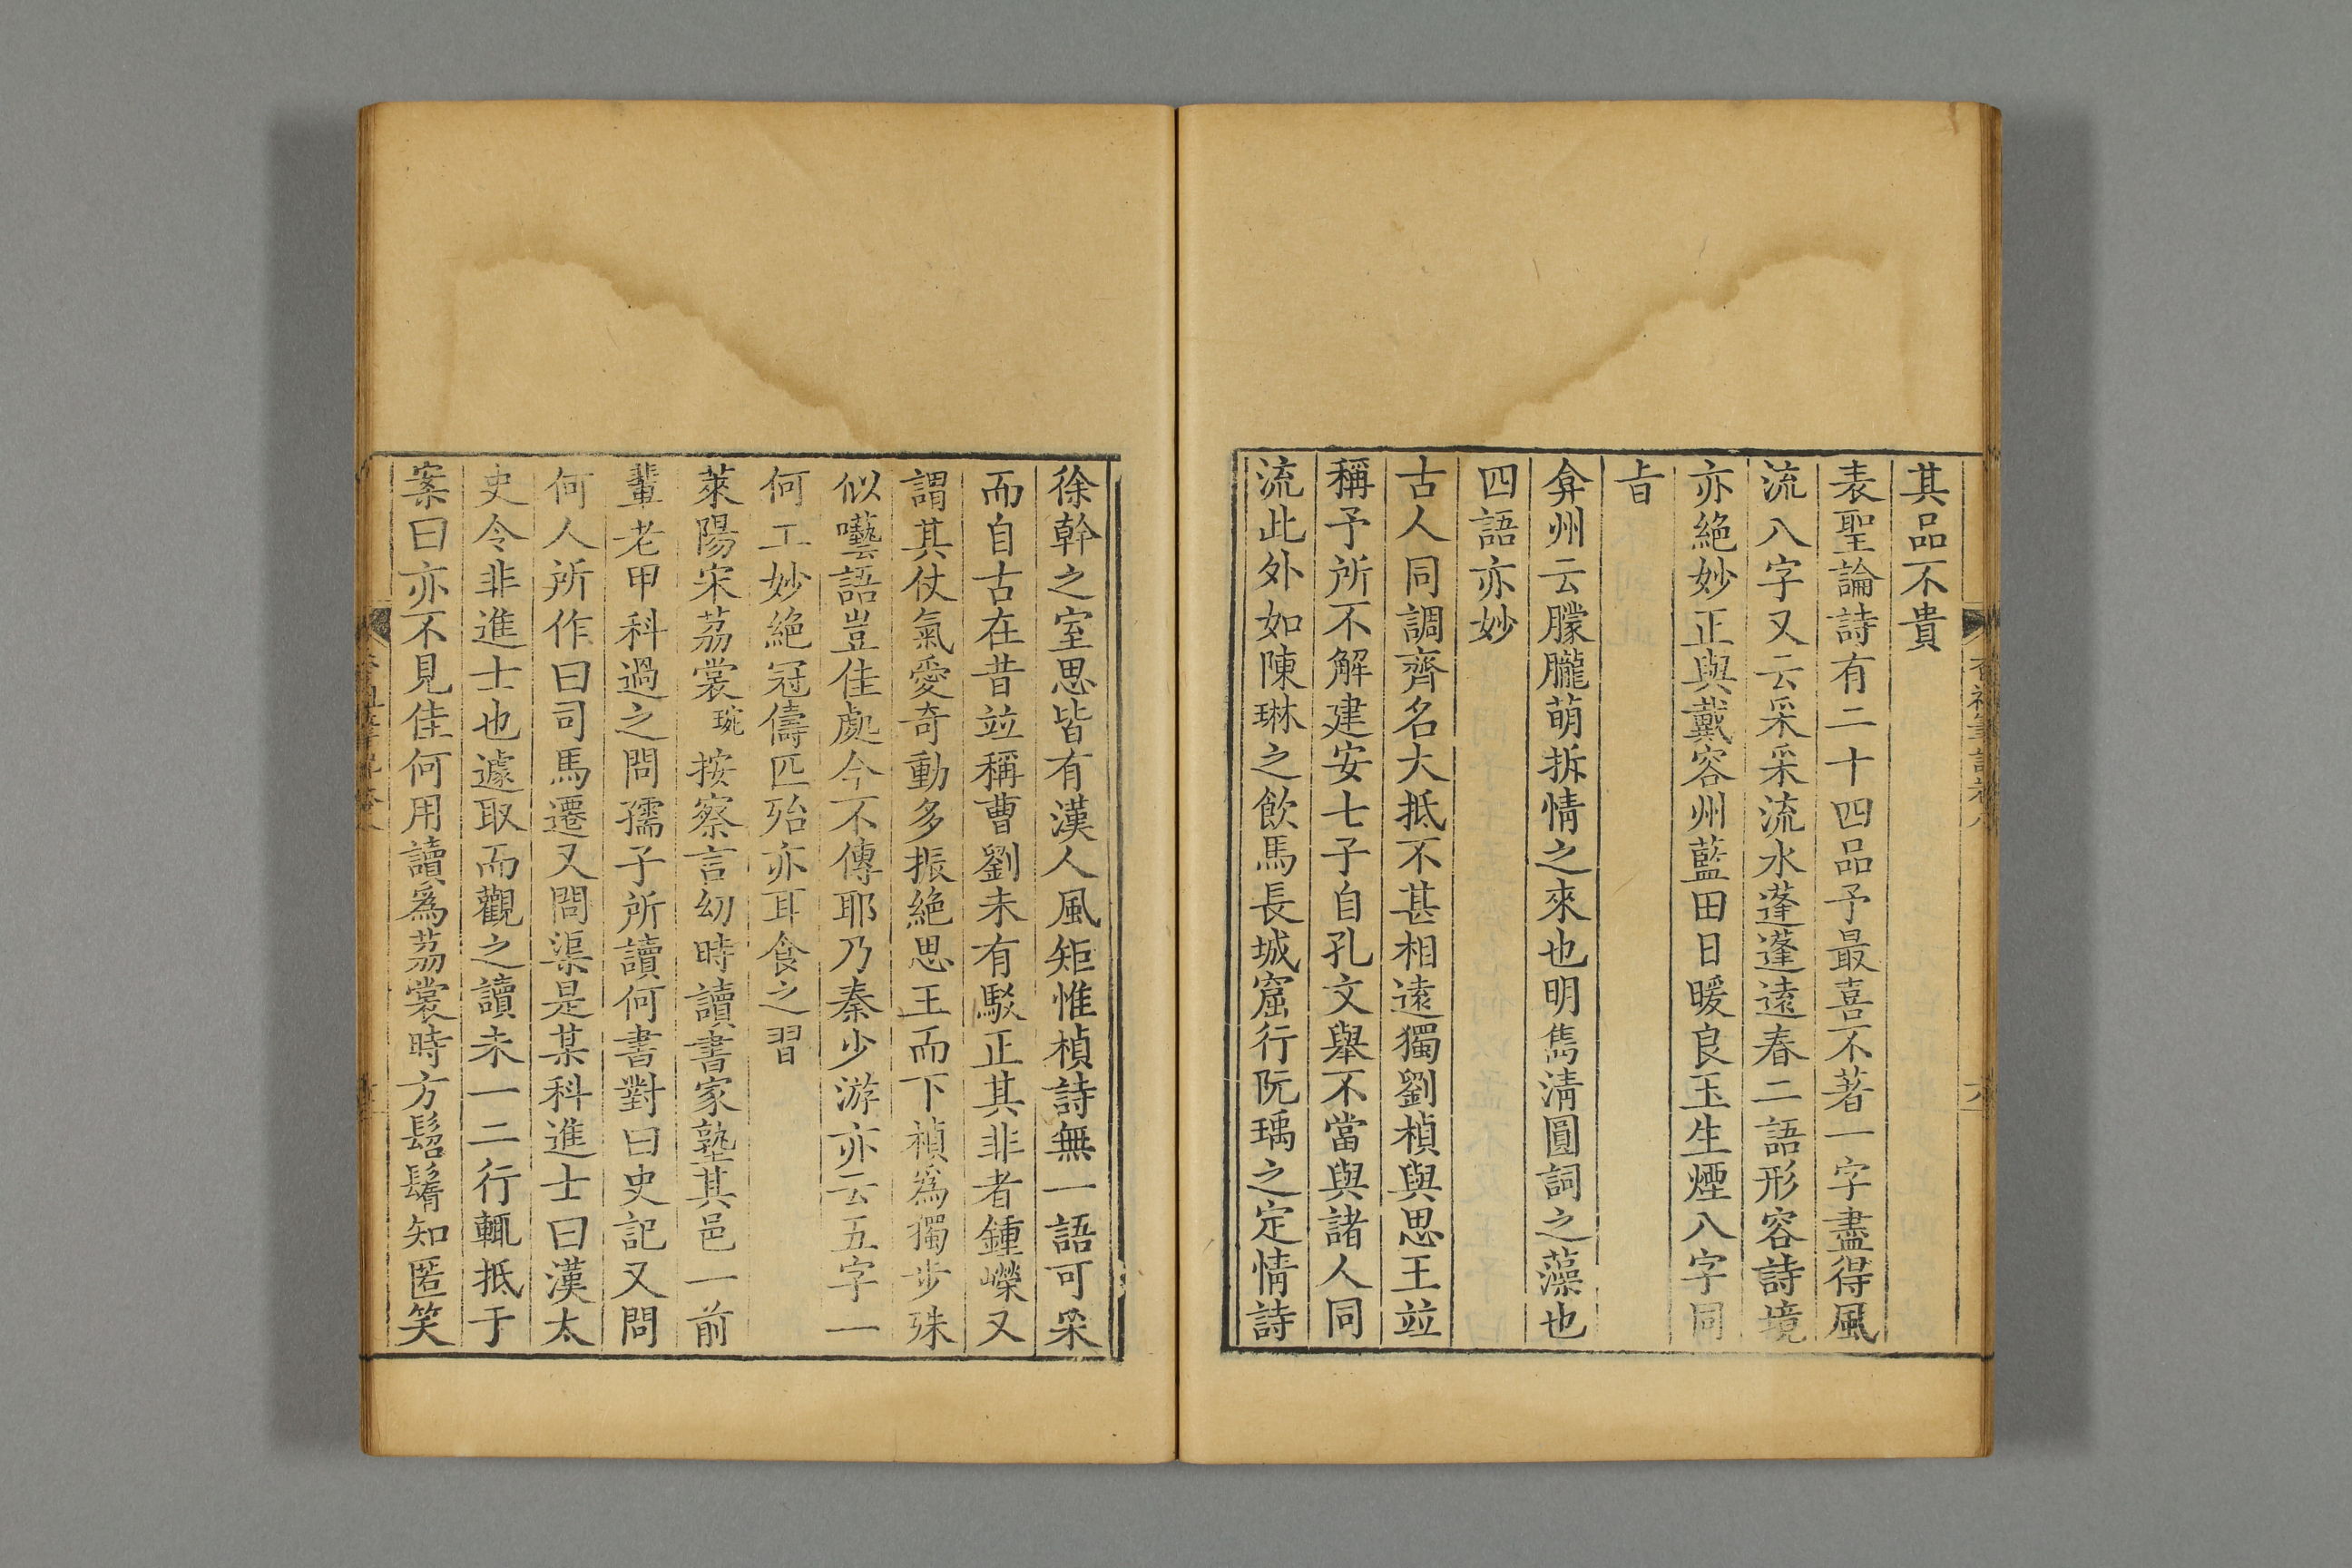 其品不貴
表聖論詩有二十四品予最喜不著一字盡得風
流八字又云采采流水蓬蓬遠春二語形容詩境
亦絕妙正與戴容州藍田日暖良玉生煙八字同
㫖
弇州云朦朧萌拆情之來也明雋清圓詞之藻也
四語亦妙
古人同調齊名大抵不甚相遠獨劉楨與思王竝
稱予所不解建安七子自孔文舉不當與諸人同
流此外如陳琳之飲馬長城窟行阮瑀之定情詩
徐幹之室思皆有漢人風矩惟楨詩無一語可采
而自古在昔竝稱曹劉未有駁正其非者鍾嶸又
謂其仗氣愛奇動多振絕思王而下楨爲獨步殊
似囈語豈佳處今不傳耶乃秦少游亦云五字一
何工妙絕冠儔匹殆亦耳食之習
萊陽宋荔裳琬按察言幼時讀書家塾其邑一前
輩老甲科過之問孺子所讀何書對曰史記又問
何人所作曰司馬遷又問渠是某科進士曰漢太
史令非進士也遽取而觀之讀未一二行輒抵于
案曰亦不見佳何用讀爲荔裳時方髫鬌知匿笑